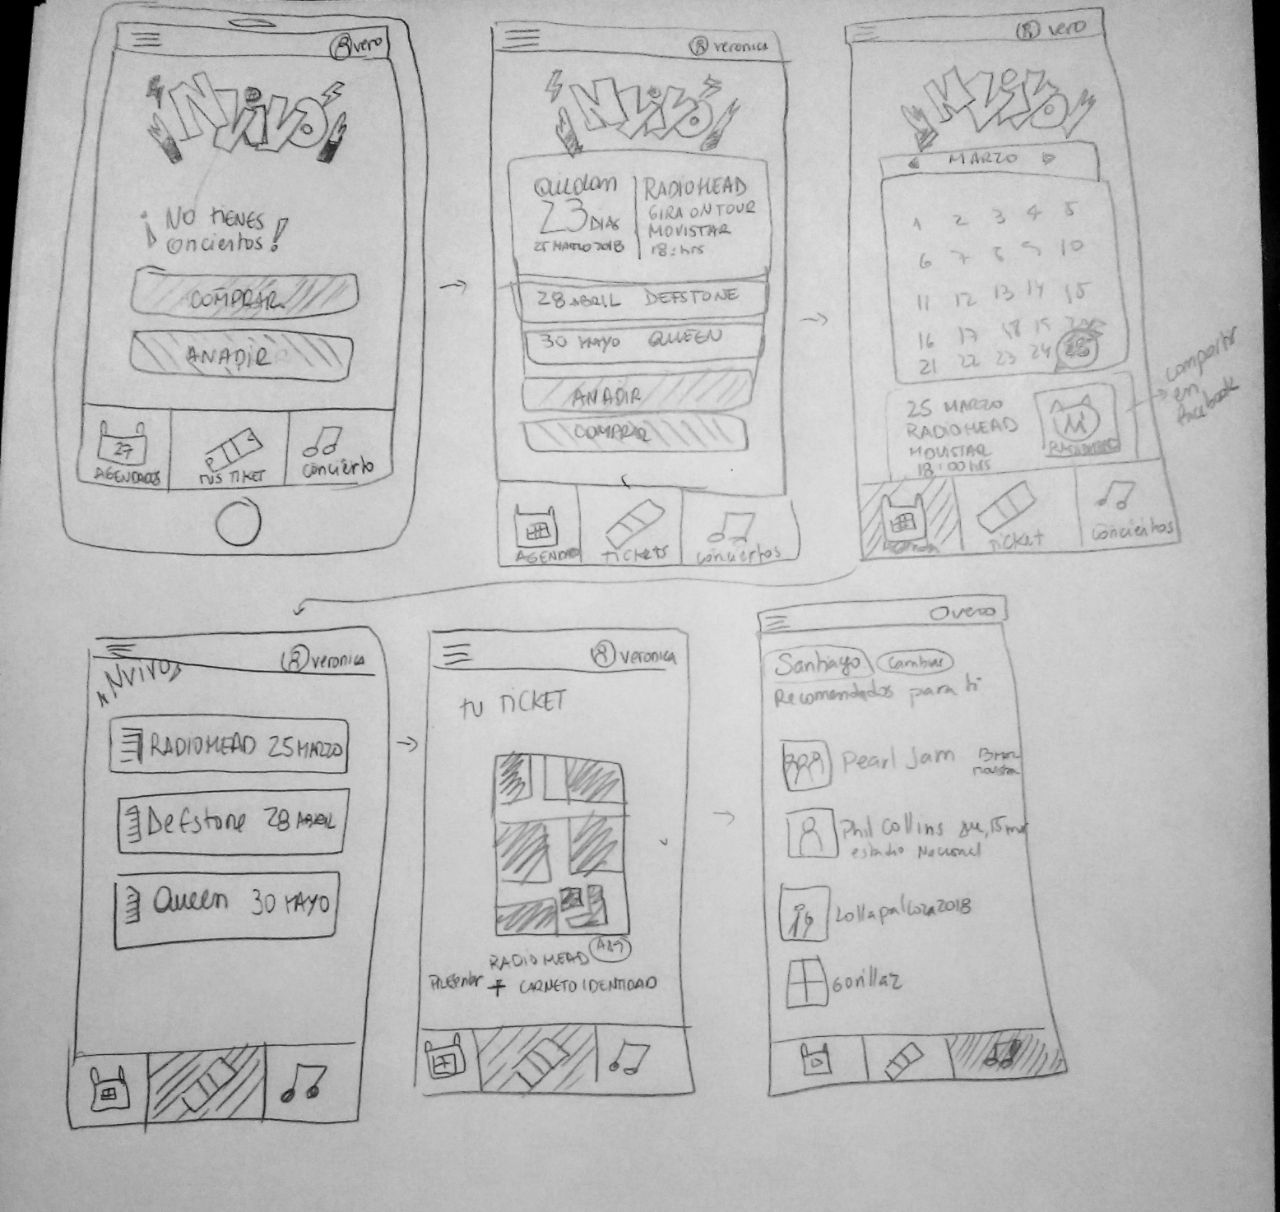 vero
NVIVO
¡NO TIENES
CONCIERTOS!
COMPRAR
AÑADIR
27
AGENDADOS
TUS TIKET
CONCIERTO
veronica
NVIVO
QUEDAN
23 DIAS
25 MARZO 2018
RADIOHEAD
GIRA ON TOUR
MOVISTAR
18: hrs
28 ABRIL DEFSTONE
30 MAYO QUEEN
AÑADIR
COMPRAR
AGENDA
TICKETS
CONCIERTOS
vero
NVIVO
MARZO
1 2 3 4 5
6 7 8 9 10
11 12 13 14 15
16 17 18 19
21 22 23 24 25
25 MARZO
RADIOHEAD
MOVISTAR
18:00 HRS
compartir
en
facebook
Agenda
TICKET
CONCIERTOS
NVIVO
veronica
RADIOHEAD 25 MARZO
Defstone 28 ABRIL
Queen 30 MAYO
veronica
TU TICKET
RADIOHEAD
Presentar + CARNET O IDENTIDAD
vero
Santiago
Cambiar
Recomendados para ti
Pearl Jam
Phil Collins
estadio Nacional
Lollapalooza 2018
Gorillaz